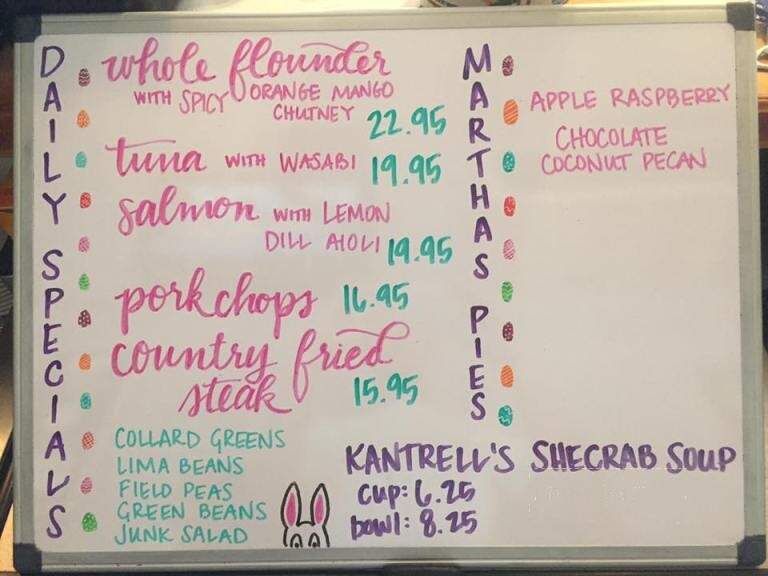 DAILY SPECIALS
whole flounder
WITH SPICY ORANGE MANGO
CHUTNEY 22.95
tuna WITH WASABI 19.95
salmon WITH LEMON
DILL AIOLI 19.95
pork chops 16.95
country fried
steak 15.95
COLLARD GREENS
LIMA BEANS
FIELD PEAS
GREEN BEANS
JUNK SALAD
MARTHAS PIES
APPLE RASPBERRY
CHOCOLATE
COCONUT PECAN
KANTRELL'S SHECRAB SOUP
CUP: 6.25
bowl: 8.25